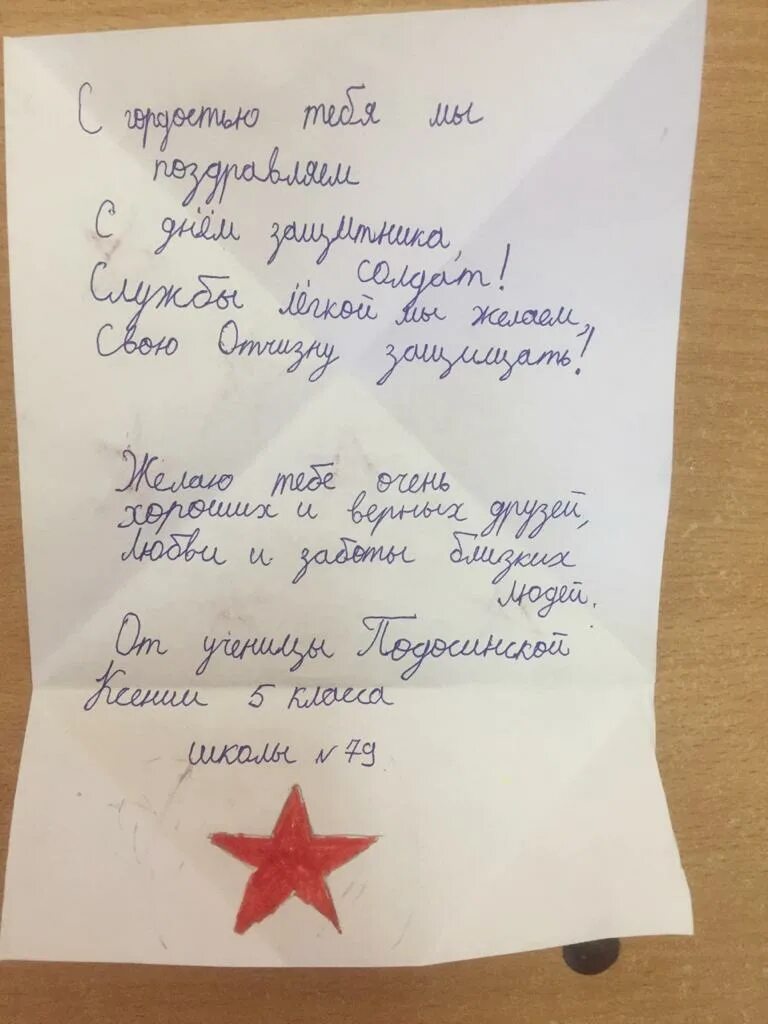 С гордостью тебя мы
поздравляем
С днём защитника,
солдат!
Службы лёгкой мы желаем,
Свою Отчизну защищать!
Желаю тебе очень
хороших и верных друзей,
любви и заботы близких
людей.
От ученицы Подосинской
Ксении 5 класса
школы № 79